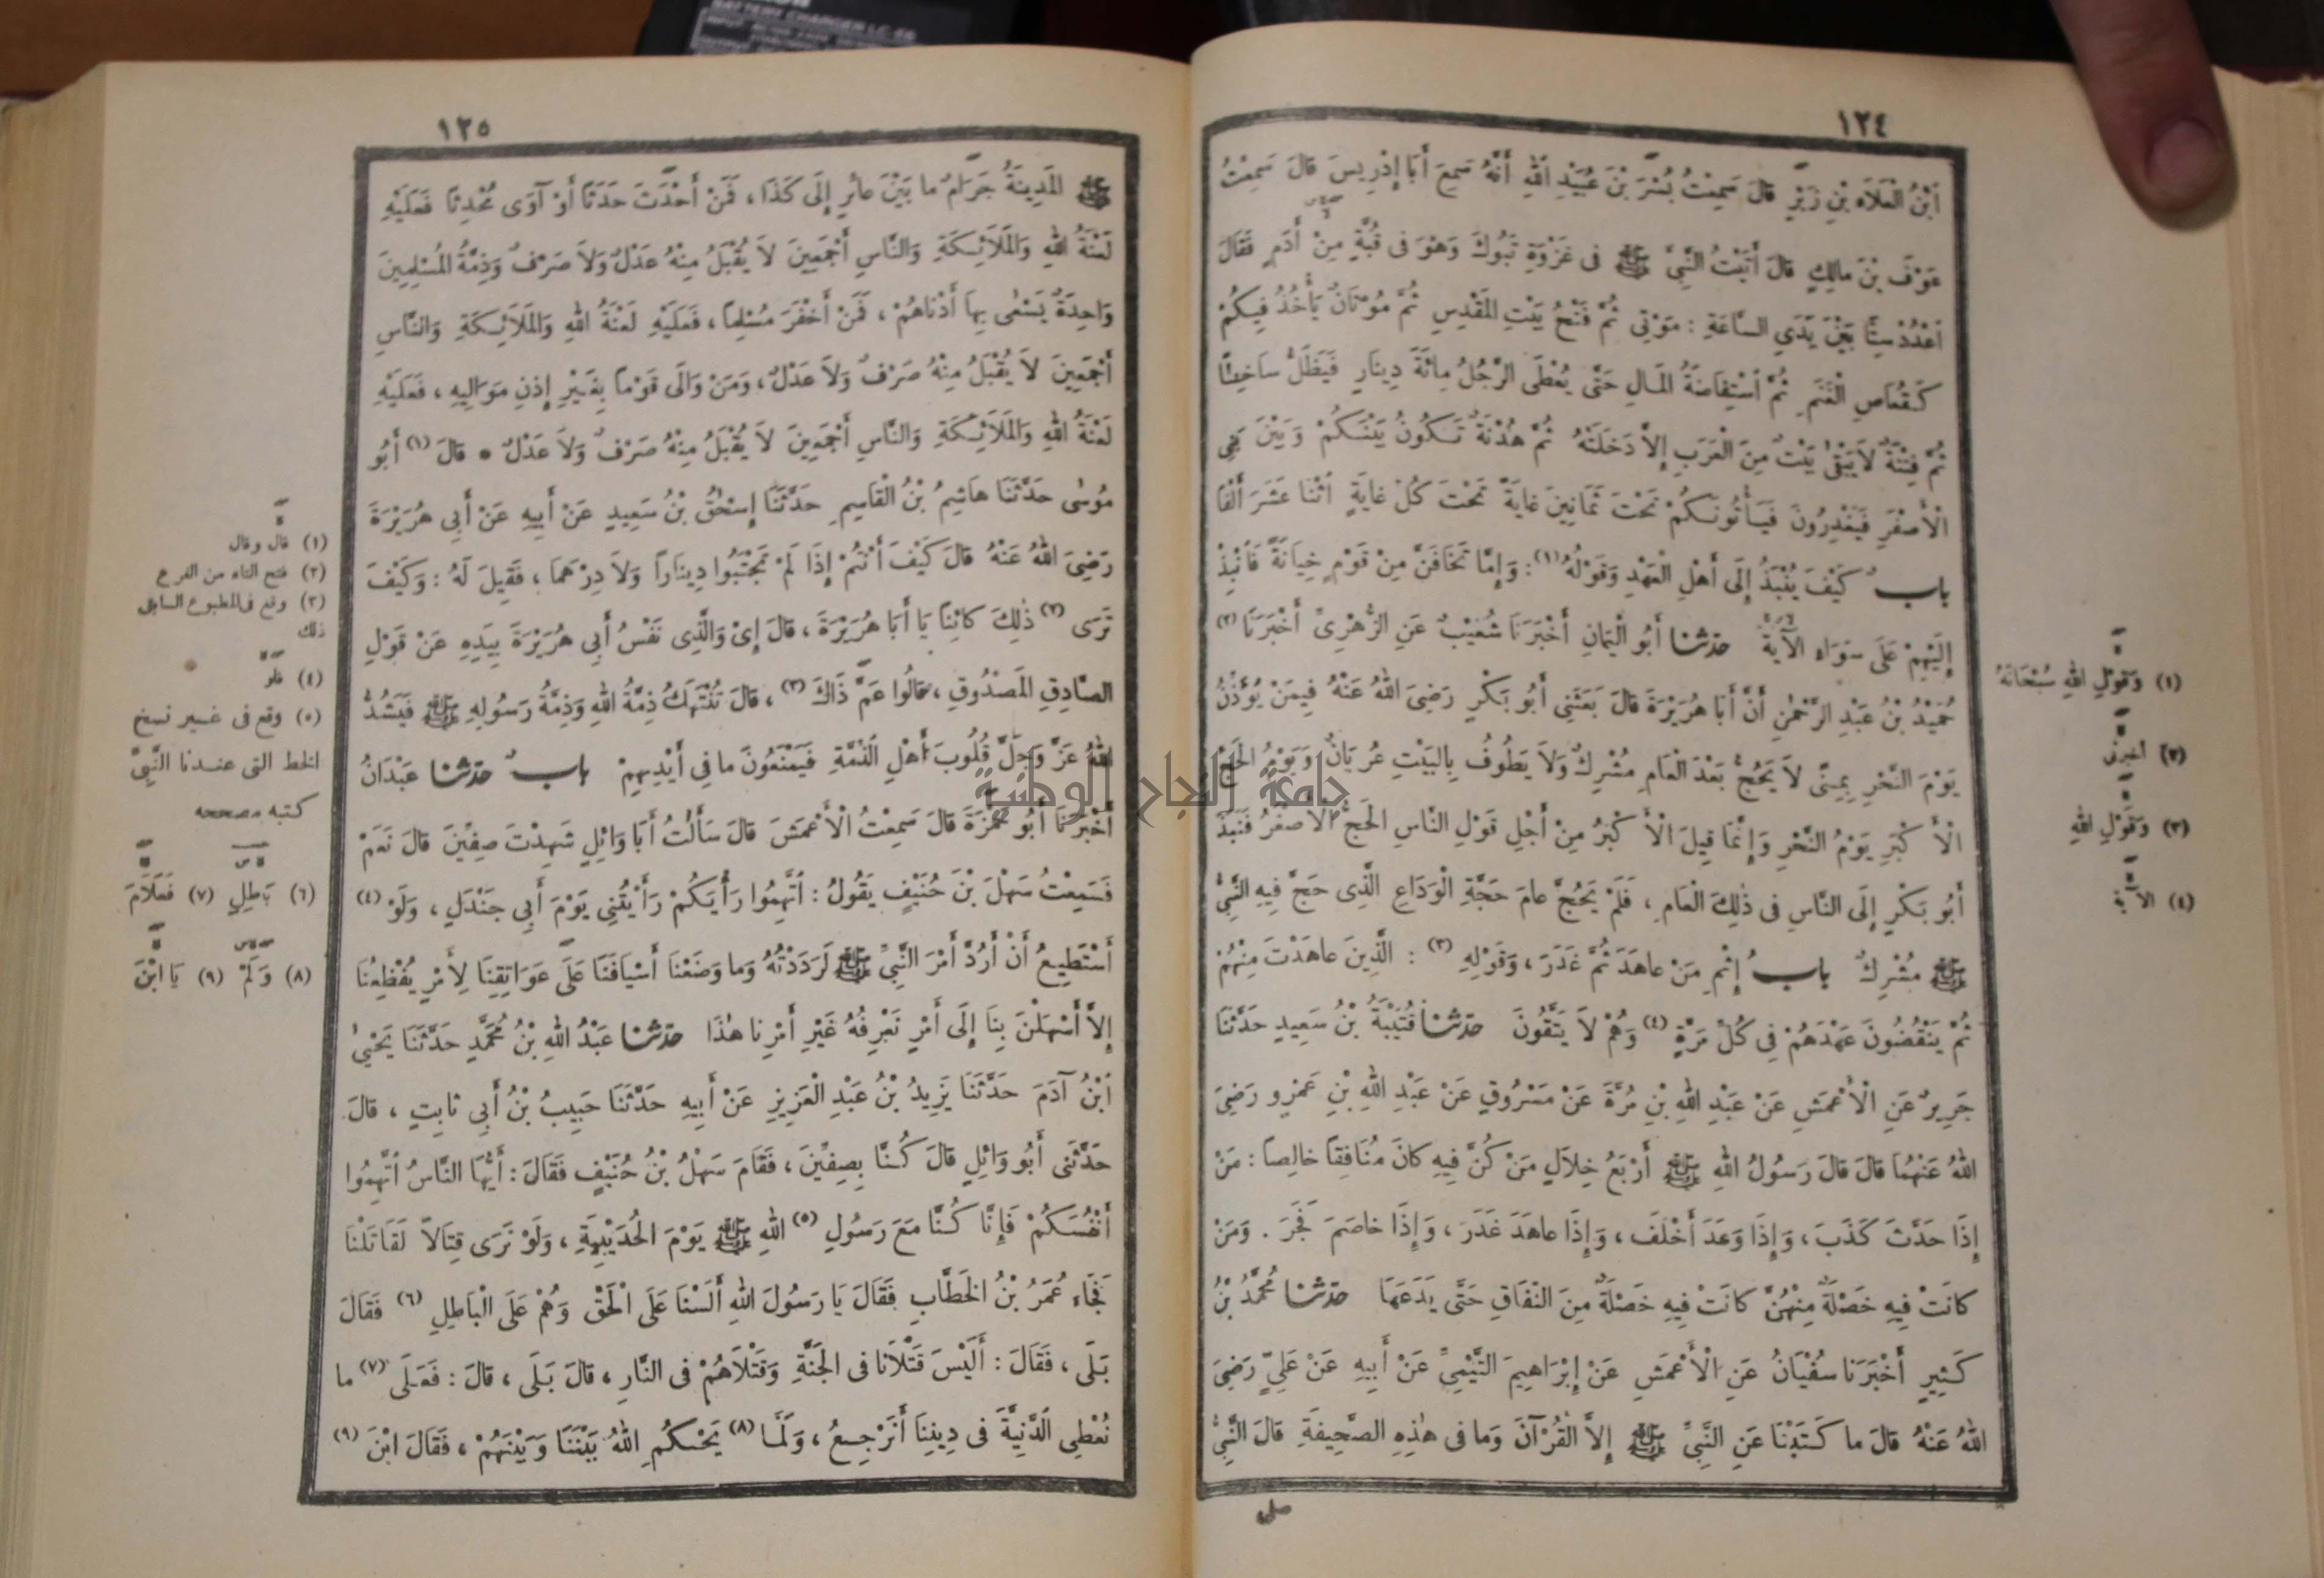 BATTERY CHARGER LC-E6
١٢٤
ٱبْنُ الْعَلَاءِ بْنِ زَبْرٍ قَالَ سَمِعْتُ بُسْرَ بْنَ عُبَيْدِ اللهِ أَنَّهُ سَمِعَ أَبَا إِدْرِيسَ قَالَ سَمِعْتُ
عَوْفَ بْنَ مالِكٍ قالَ أَتَيْتُ النَّبِيَّ ﷺ فى غَزْوَةِ تَبُوكَ وَهْوَ فى قُبَّةٍ مِنْ أَدَمٍ فَقَالَ
ٱعْدُدْ سِتًّا بَيْنَ يَدَيِ السَّاعَةِ : مَوْتِي ثُمَّ فَتْحُ بَيْتِ المَقْدِسِ ثُمَّ مُوْتَانٌ يَأْخُذُ فِيكُمْ
كَقُعَاصِ الْغَنَمِ ثُمَّ ٱسْتِفَاضَةُ المَالِ حَتَّى يُعْطَى الرَّجُلُ مِائَةَ دِينَارٍ فَيَظَلُّ ساخِطًا
ثُمَّ فِتْنَةٌ لاَ يَبْقَى بَيْتٌ مِنَ الْعَرَبِ إِلاَّ دَخَلَتْهُ ثُمَّ هُدْنَةٌ تَكُونُ بَيْنَكُمْ وَبَيْنَ بَنِي
الْأَصْفَرِ فَيَغْدِرُونَ فَيَأْتُونَكُمْ تَحْتَ ثَمَانِينَ غايَةً تَحْتَ كُلِّ غايَةٍ ٱثْنَا عَشَرَ أَلْفًا
بابٌ كَيْفَ يُنْبَذُ إِلَى أَهْلِ الْعَهْدِ وَقَوْلُهُ (١) : وَإِمَّا تَخَافَنَّ مِنْ قَوْمٍ خِيَانَةً فَٱنْبِذْ
إِلَيْهِمْ عَلَى سَوَاءٍ الآيَةَ حدّثنا أَبُو الْيَمَانِ أَخْبَرَنَا شُعَيْبٌ عَنِ الزُّهْرِىِّ أَخْبَرَنَا (٢)
حُمَيْدُ بْنُ عَبْدِ الرَّحْمٰنِ أَنَّ أَبَا هُرَيْرَةَ قالَ بَعَثَنِي أَبُو بَكْرٍ رَضِىَ اللهُ عَنْهُ فِيمَنْ يُؤَذِّنُ
يَوْمَ النَّحْرِ بِمِنًى لاَ يَحُجُّ بَعْدَ الْعَامِ مُشْرِكٌ وَلاَ يَطُوفُ بِالبَيْتِ عُرْيَانٌ وَيَوْمُ الحَجِّ
الْأَكْبَرِ يَوْمُ النَّحْرِ وَإِنَّمَا قِيلَ الْأَكْبَرُ مِنْ أَجْلِ قَوْلِ النَّاسِ الحَجُّ الْأَصْغَرُ فَنَبَذَ
أَبُو بَكْرٍ إِلَى النَّاسِ فى ذٰلِكَ الْعَامِ ، فَلَمْ يَحُجَّ عامَ حَجَّةِ الْوَدَاعِ الَّذِى حَجَّ فِيهِ النَّبِيُّ
ﷺ مُشْرِكٌ بابُ إِثْمِ مَنْ عاهَدَ ثُمَّ غَدَرَ ، وَقَوْلِهِ (٣) : الَّذِينَ عاهَدْتَ مِنْهُمْ
ثُمَّ يَنْقُضُونَ عَهْدَهُمْ فِى كُلِّ مَرَّةٍ (٤) وَهُمْ لاَ يَتَّقُونَ حدّثنا قُتَيْبَةُ بْنُ سَعِيدٍ حَدَّثَنَا
جَرِيرٌ عَنِ الْأَعْمَشِ عَنْ عَبْدِ اللهِ بْنِ مُرَّةَ عَنْ مَسْرُوقٍ عَنْ عَبْدِ اللهِ بْنِ عَمْرٍو رَضِىَ
اللهُ عَنْهُمَا قالَ قالَ رَسُولُ اللهِ ﷺ أَرْبَعُ خِلاَلٍ مَنْ كُنَّ فِيهِ كانَ مُنَافِقًا خالِصاً : مَنْ
إِذَا حَدَّثَ كَذَبَ ، وَإِذَا وَعَدَ أَخْلَفَ ، وَإِذَا عاهَدَ غَدَرَ ، وَإِذَا خاصَمَ فَجَرَ . وَمَنْ
كانَتْ فِيهِ خَصْلَةٌ مِنْهُنَّ كانَتْ فِيهِ خَصْلَةٌ مِنَ النِّفَاقِ حَتَّى يَدَعَهَا حدّثنا مُحَمَّدُ بْنُ
كَثِيرٍ أَخْبَرَنا سُفْيَانُ عَنِ الْأَعْمَشِ عَنْ إِبْرَاهِيمَ التَّيْمِيِّ عَنْ أَبِيهِ عَنْ عَلِيٍّ رَضِىَ
اللهُ عَنْهُ قالَ ما كَتَبْنَا عَنِ النَّبِيِّ ﷺ إِلاَّ الْقُرْآنَ وَما فى هٰذِهِ الصَّحِيفَةِ قالَ النَّبِيُّ
صلى
(١) وَقَوْلِ اللهِ سُبْحَانَهُ
(٢) أخبرنى
(٣) وَقَوْلِ اللهِ
(٤) الآيَةَ
١٢٥
ﷺ المَدِينَةُ حَرَامٌ ما بَيْنَ عائِرٍ إِلَى كَذَا ، فَمَنْ أَحْدَثَ حَدَثًا أَوْ آوَى مُحْدِثًا فَعَلَيْهِ
لَعْنَةُ اللهِ وَالمَلاَئِكَةِ وَالنَّاسِ أَجْمَعِينَ لاَ يُقْبَلُ مِنْهُ عَدْلٌ وَلاَ صَرْفٌ وَذِمَّةُ المُسْلِمِينَ
وَاحِدَةٌ يَسْعٰى بِهَا أَدْنَاهُمْ ، فَمَنْ أَخْفَرَ مُسْلِماً ، فَعَلَيْهِ لَعْنَةُ اللهِ وَالمَلاَئِكَةِ وَالنَّاسِ
أَجْمَعِينَ لاَ يُقْبَلُ مِنْهُ صَرْفٌ وَلاَ عَدْلٌ ، وَمَنْ وَالَى قَوْماً بِغَيْرِ إِذْنِ مَوَالِيهِ ، فَعَلَيْهِ
لَعْنَةُ اللهِ وَالمَلاَئِكَةِ وَالنَّاسِ أَجْمَعِينَ لاَ يُقْبَلُ مِنْهُ صَرْفٌ وَلاَ عَدْلٌ • قالَ (١) أَبُو
مُوسٰى حَدَّثَنَا هَاشِمُ بْنُ الْقَاسِمِ حَدَّثَنَا إِسْحٰقُ بْنُ سَعِيدٍ عَنْ أَبِيهِ عَنْ أَبِي هُرَيْرَةَ
رَضِىَ اللهُ عَنْهُ قالَ كَيْفَ أَنْتُمْ إِذَا لَمْ تَجْتَبُوا دِينَاراً وَلاَ دِرْهَمًا ، فَقِيلَ لَهُ : وَكَيْفَ
تَرَى (٢) ذٰلِكَ كائِنًا يَا أَبَا هُرَيْرَةَ ، قالَ إِىْ وَالَّذِى نَفْسُ أَبِي هُرَيْرَةَ بِيَدِهِ عَنْ قَوْلِ
الصَّادِقِ المَصْدُوقِ ، قالُوا عَمَّ ذَاكَ (٣) ، قالَ تُنْتَهَكُ ذِمَّةُ اللهِ وَذِمَّةُ رَسُولِهِ ﷺ فَيَشُدُّ
اللهُ عَزَّ وَجَلَّ قُلُوبَ أَهْلِ الذِّمَّةِ فَيَمْنَعُونَ ما فِي أَيْدِيهِمْ بابٌ حدّثنا عَبْدَانُ
أَخْبَرَنَا أَبُو حَمْزَةَ قالَ سَمِعْتُ الْأَعْمَشَ قالَ سَأَلْتُ أَبَا وَائِلٍ شَهِدْتَ صِفِّينَ قالَ نَعَمْ
فَسَمِعْتُ سَهْلَ بْنَ حُنَيْفٍ يَقُولُ : ٱتَّهِمُوا رَأْيَكُمْ رَأَيْتُنِي يَوْمَ أَبِي جَنْدَلٍ ، وَلَوْ (٤)
أَسْتَطِيعُ أَنْ أَرُدَّ أَمْرَ النَّبِيِّ ﷺ لَرَدَدْتُهُ وَما وَضَعْنَا أَسْيَافَنَا عَلَى عَوَاتِقِنَا لِأَمْرٍ يُفْظِعُنَا
إِلاَّ أَسْهَلْنَ بِنَا إِلَى أَمْرٍ نَعْرِفُهُ غَيْرِ أَمْرِنا هٰذَا حدّثنا عَبْدُ اللهِ بْنُ مُحَمَّدٍ حَدَّثَنَا يَحْيٰى
ٱبْنُ آدَمَ حَدَّثَنَا يَزِيدُ بْنُ عَبْدِ الْعَزِيزِ عَنْ أَبِيهِ حَدَّثَنَا حَبِيبُ بْنُ أَبِي ثابِتٍ ، قالَ
حَدَّثَنِى أَبُو وَائِلٍ قالَ كُنَّا بِصِفِّينَ ، فَقَامَ سَهْلُ بْنُ حُنَيْفٍ فَقَالَ : أَيُّهَا النَّاسُ ٱتَّهِمُوا
أَنْفُسَكُمْ فَإِنَّا كُنَّا مَعَ رَسُولِ (٥) اللهِ ﷺ يَوْمَ الحُدَيْبِيَةِ ، وَلَوْ نَرَى قِتَالاً لَقَاتَلْنَا
فَجَاءَ عُمَرُ بْنُ الخَطَّابِ فَقَالَ يَا رَسُولَ اللهِ أَلَسْنَا عَلَى الْحَقِّ وَهُمْ عَلَى الْبَاطِلِ (٦) فَقَالَ
بَلَى ، فَقَالَ : أَلَيْسَ قَتْلاَنا فى الجَنَّةِ وَقَتْلاَهُمْ فى النَّارِ ، قالَ بَلَى ، قالَ : فَعَلَى (٧) ما
نُعْطِى الدَّنِيَّةَ فى دِينِنَا أَنَرْجِعُ ، وَلَمَّا (٨) يَحْكُمِ اللهُ بَيْنَنَا وَبَيْنَهُمْ ، فَقَالَ ابْنَ (٩)
(١) قال وقال
(٢) فتح التاء من الفرع
(٣) وقع فى المطبوع السابق
ذلك
(٤) فلو
(٥) وقع فى غير نسخ
الخط التى عندنا النَّبِيِّ
كتبه مصححه
(٦) بَاطِلٍ (٧) فَعَلاَمَ
(٨) وَلَمْ (٩) يَا ابْنَ
جامعة النجاح الوطنية